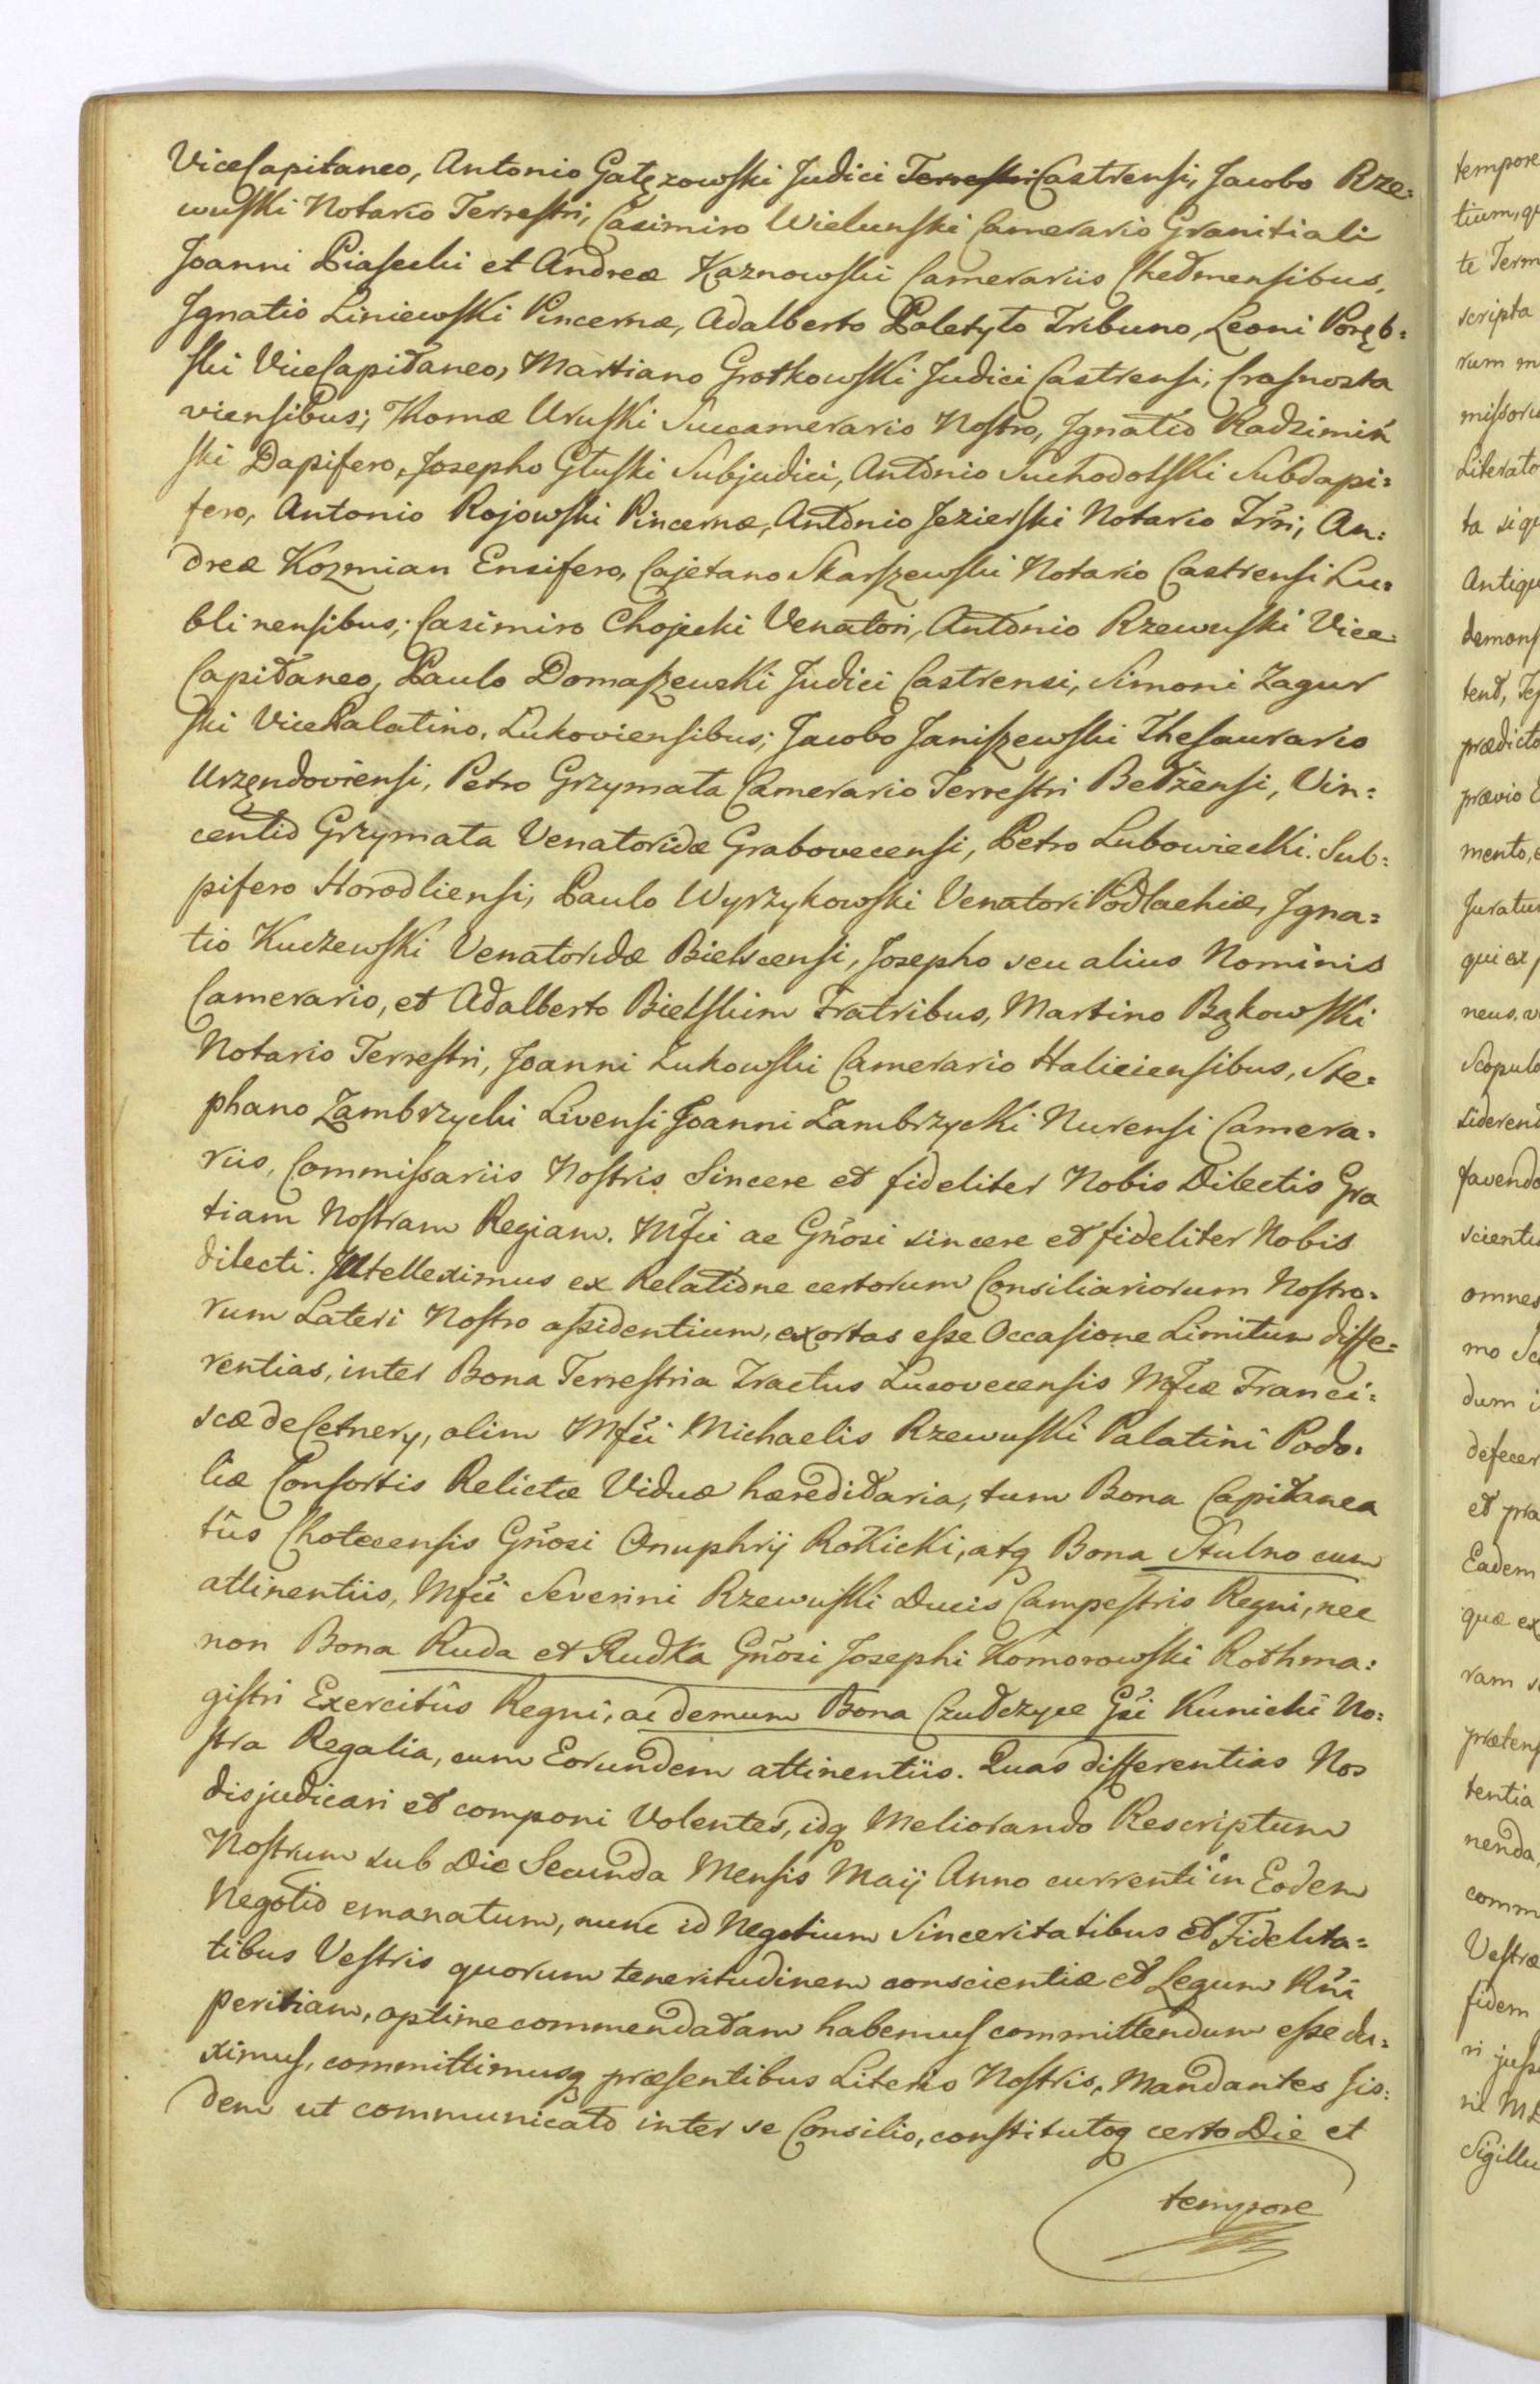 ViceCapitaneo, Antonio Gałęzowski Judici Terrestri Castrensi, Jacobo Rze=
wuski Notario Terrestri, Casimiro Wielunski Camerario Granitiali
Joanni Piasecki et Andreæ Kaznowski Camerariis Chelmensibus,
Ignatio Liniewski Pincernæ, Adalberto Poletyło Tribuno, Leoni Poręb=
ski ViceCapitaneo, Martiano Grotkowski Judici Castrensi, Crasnosta
viensibus; Thomæ Uruski Succamerario Nostro, Ignatio Radzimiń
ski Dapifero, Josepho Głuski Subjudici, Antonio Suchodolski Subdapi=
fero, Antonio Rojowski Pincernæ, Antonio Jezierski Notario Trri, An=
dreæ Kozmian Ensifero, Cajetano Skarszewski Notario Castrensi Lu=
blinensibus; Casimiro Chojecki Venatori, Antonio Rzewuski Vice=
Capitaneo, Paulo Domaszewski Judici Castrensi, Simoni Zagur
ski VicePalatino, Lukoviensibus; Jacobo Janiszewski Thesaurario
Urzęndoviensi, Petro Grzymała Camerario Terrestri Bełżensi, Vin=
centio Grzymała Venatoridæ Grabovecensi, Petro Lubowiecki Sub=
pifero Horodliensi, Paulo Wyrzykowski Venatori Podlachiæ, Igna=
tio Kuczewski Venatoridæ Bielscensi, Josepho seu alius Nominis
Camerario, et Adalberto Bielskim Fratribus, Martino Bąkowski
Notario Terrestri, Joanni Żukowski Camerario Haliciensibus, Ste=
phano Zambrzycki Livensi Joanni Zambrzycki Nurensi Camera=
riis, Commissariis Nostris Sincere et fideliter Nobis Dilectis Gra
tiam Nostram Regiam. Mfci ac Gñosi sincere et fideliter Nobis
dilecti. Intelleximus ex Relatione certorum Consiliariorum Nostro=
rum Lateri Nostro assidentium, exortas esse Occasione Limitum diffe=
rentias, inter Bona Terrestria Tractus Lucovecensis Mfcæ Franci=
scæ de Cetnery, olim Mfci Michaelis Rzewuski Palatini Podo=
liæ Consortis Relictæ Viduæ hæreditaria, tum Bona Capitanea
tûs Chotecensis Gñosi Onuphrij Rokicki, atq Bona Stulno cum
attinentiis, Mfci Severini Rzewuski Ducis Campestris Regni, nec
non Bona Ruda et Rudka Gñosi Josephi Komorowski Rothma=
gistri Exercitûs Regni, ac demum Bona Czułczyce Gsi Kunicki No=
stra Regalia, cum Eorundem attinentiis. Quas differentias Nos
disjudicari et componi Volentes, idq Meliorando Rescriptum
Nostrum sub Die Secunda Mensis Maij Anno currenti in Eodem
Negotio emanatum, nunc id Negotium Sinceritatibus et Fidelita=
tibus Vestris quorum teneritudinem conscientiæ et Legum Rñi
peritiam, optime commendatam habemus committendum esse du=
ximus, committimusq præsentibus Literis Nostris, Mandantes iis=
dem ut communicato inter se Consilio, constitutoq certo Die et
tempore
tempore
tium, qu
te Term
scripta
rum m
missoriu
Literato
ta siqu
Antiqu
demons
prædicto
prævio
mento, e
Juratu
qui ex p
neus,
Scopulo
siderend
favendo
scienti
omnes
mo Sc
dum i
defecer
et præ
Eadem
quæ ex
ram s
prætens
tentia
nenda
comm
Vestræ
fidem
ri juss
Sigillu